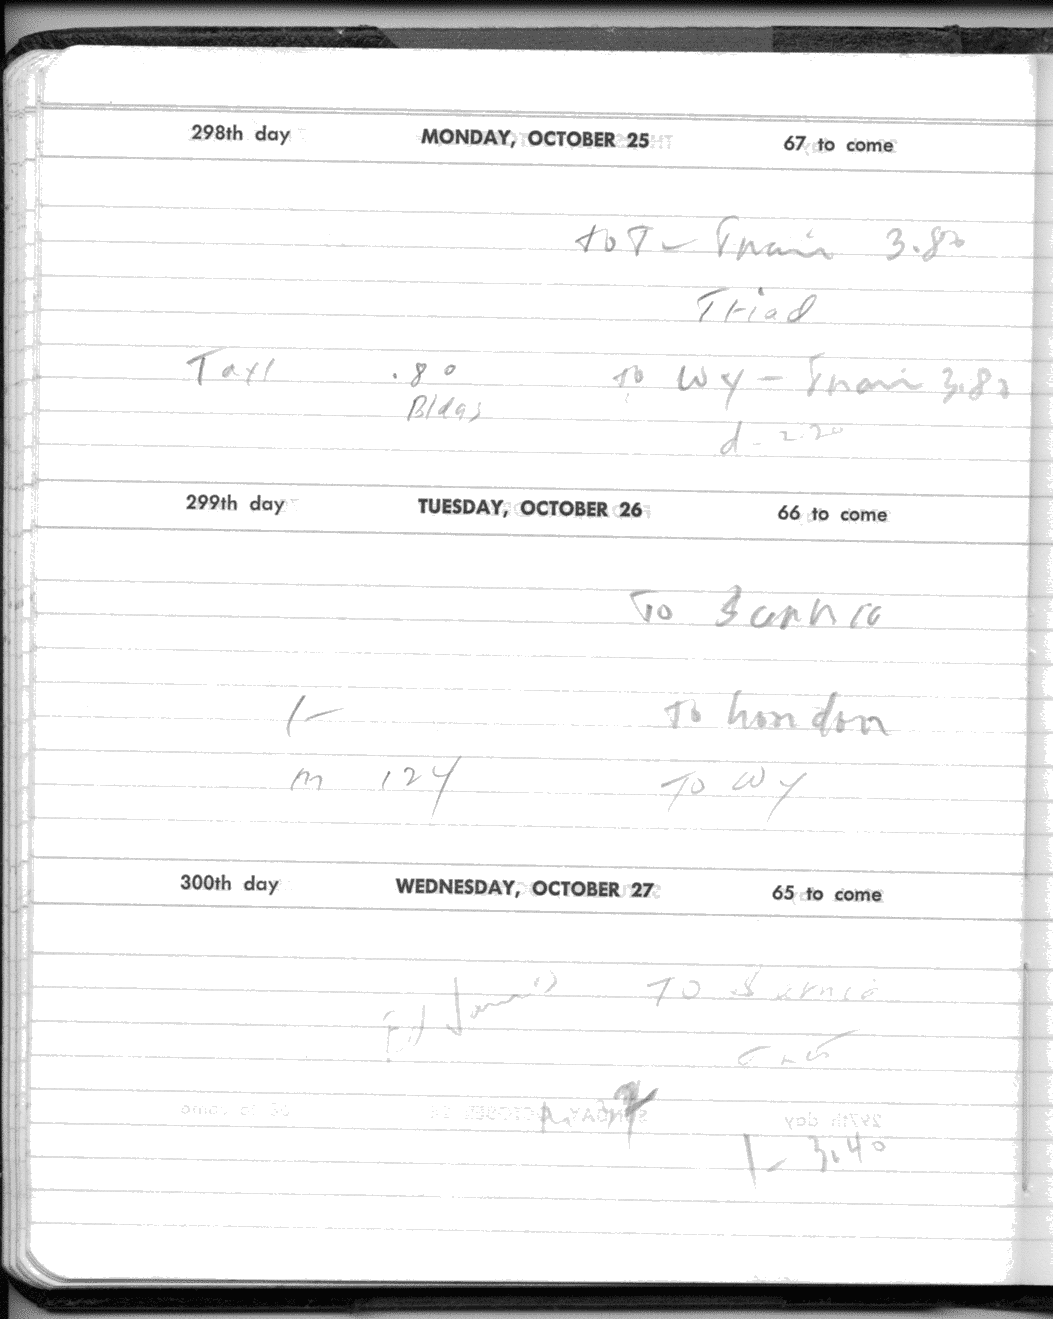 298th day MONDAY, OCTOBER 25 67 to come
to T - Train 3.80
Triad
Taxi .80 to WY - Train 3.80
Bldgs
d - 2.20
299th day TUESDAY, OCTOBER 26 66 to come
To Sarnia
1- To London
m 124 To WY
300th day WEDNESDAY, OCTOBER 27 65 to come
Ed To Sarnia
1- 3.40